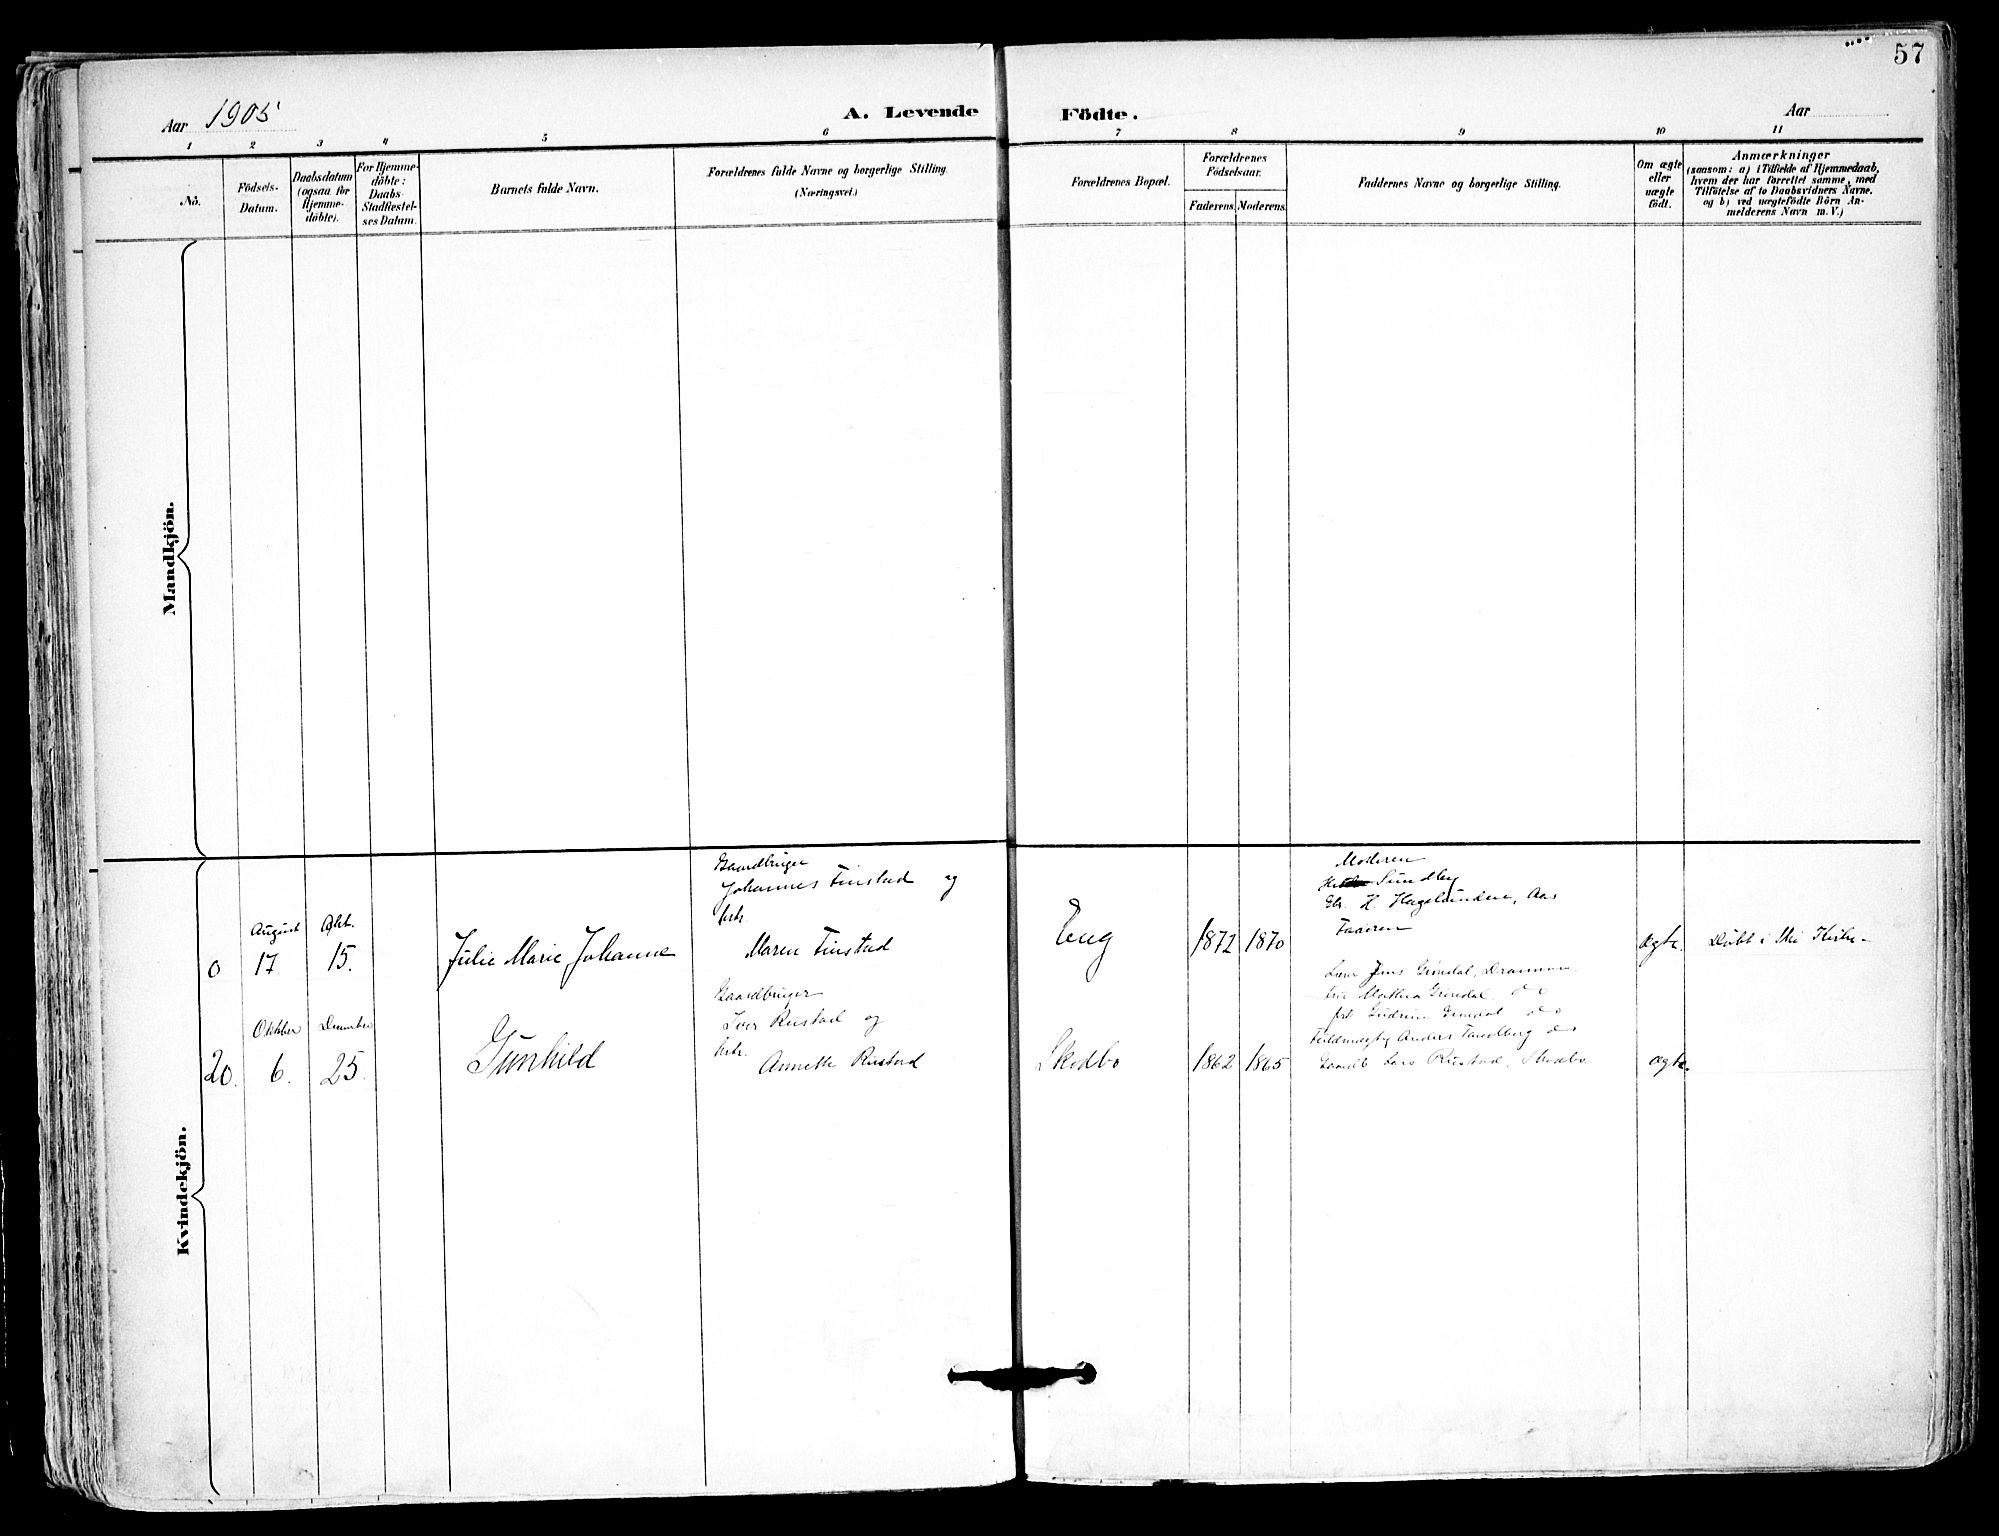 57
Aar 1905
A. Levende Födte.
Aar
1 2 3 4 5 6 7 8 9 10 11
No.
Födsels-
Datum.
Daabsdatum
(ogsaa for
Hjemme-
döbte).
For Hjemme-
döbte:
Daabs-
Stadfæstel-
ses Datum.
Barnets fulde Navn.
Forældrenes fulde Navne og borgerlige Stilling.
(Næringsvei.)
Forældrenes Bopæl.
Forældrenes
Födselsaar.
Faderens. Moderens.
Faddernes Navne og borgerlige Stilling.
Om ægte
eller
uægte
födt.
Anmærkninger
(saasom: a) i Tilfælde af Hjemmedaab,
hvem der har forrettet samme, med
Tilföielse af to Daabsvidners Navne,
og b) ved uægtefödte Börn An-
melderens Navn m. V.)
Mandkjön.
Kvindekjön.
0
August
17
Okt.
15.
Julie Marie Johanne
Gaardbruger
Johannes Finstad og
hstr.
Maren Finstad
Eng
1872 1870
Moderen
Sundby
H. Hagelunden, Aas
Faderen
ægte.
Döbt i Ski Kirke
20.
Oktober
6.
December
25.
Gunhild
Gaardbruger
Iver Rustad og
hstr.
Annette Rustad
Skodbo
1862 1865
Jens Grindal, Drammen
Mathea Grindal do
Gudrun Grindal do
Anders Tandberg do
Gaardb Lars Rustad, Skodbo
ægte.